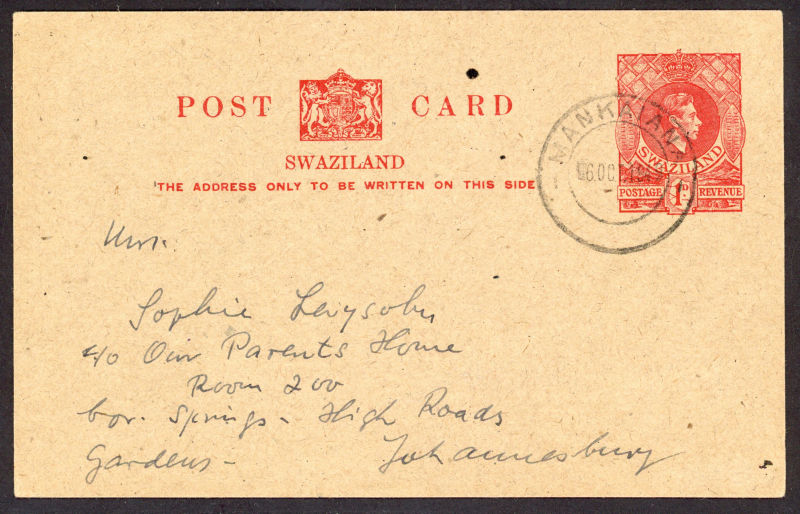 POST CARD
SWAZILAND
THE ADDRESS ONLY TO BE WRITTEN ON THIS SIDE
SWAZILAND
POSTAGE 1D. REVENUE
MANKAIANA
6 OCT
Mrs.
Sophie Levysohn
c/o Our Parents Home
Room 200
Cor. Springs - High Roads
Gardens - Johannesburg